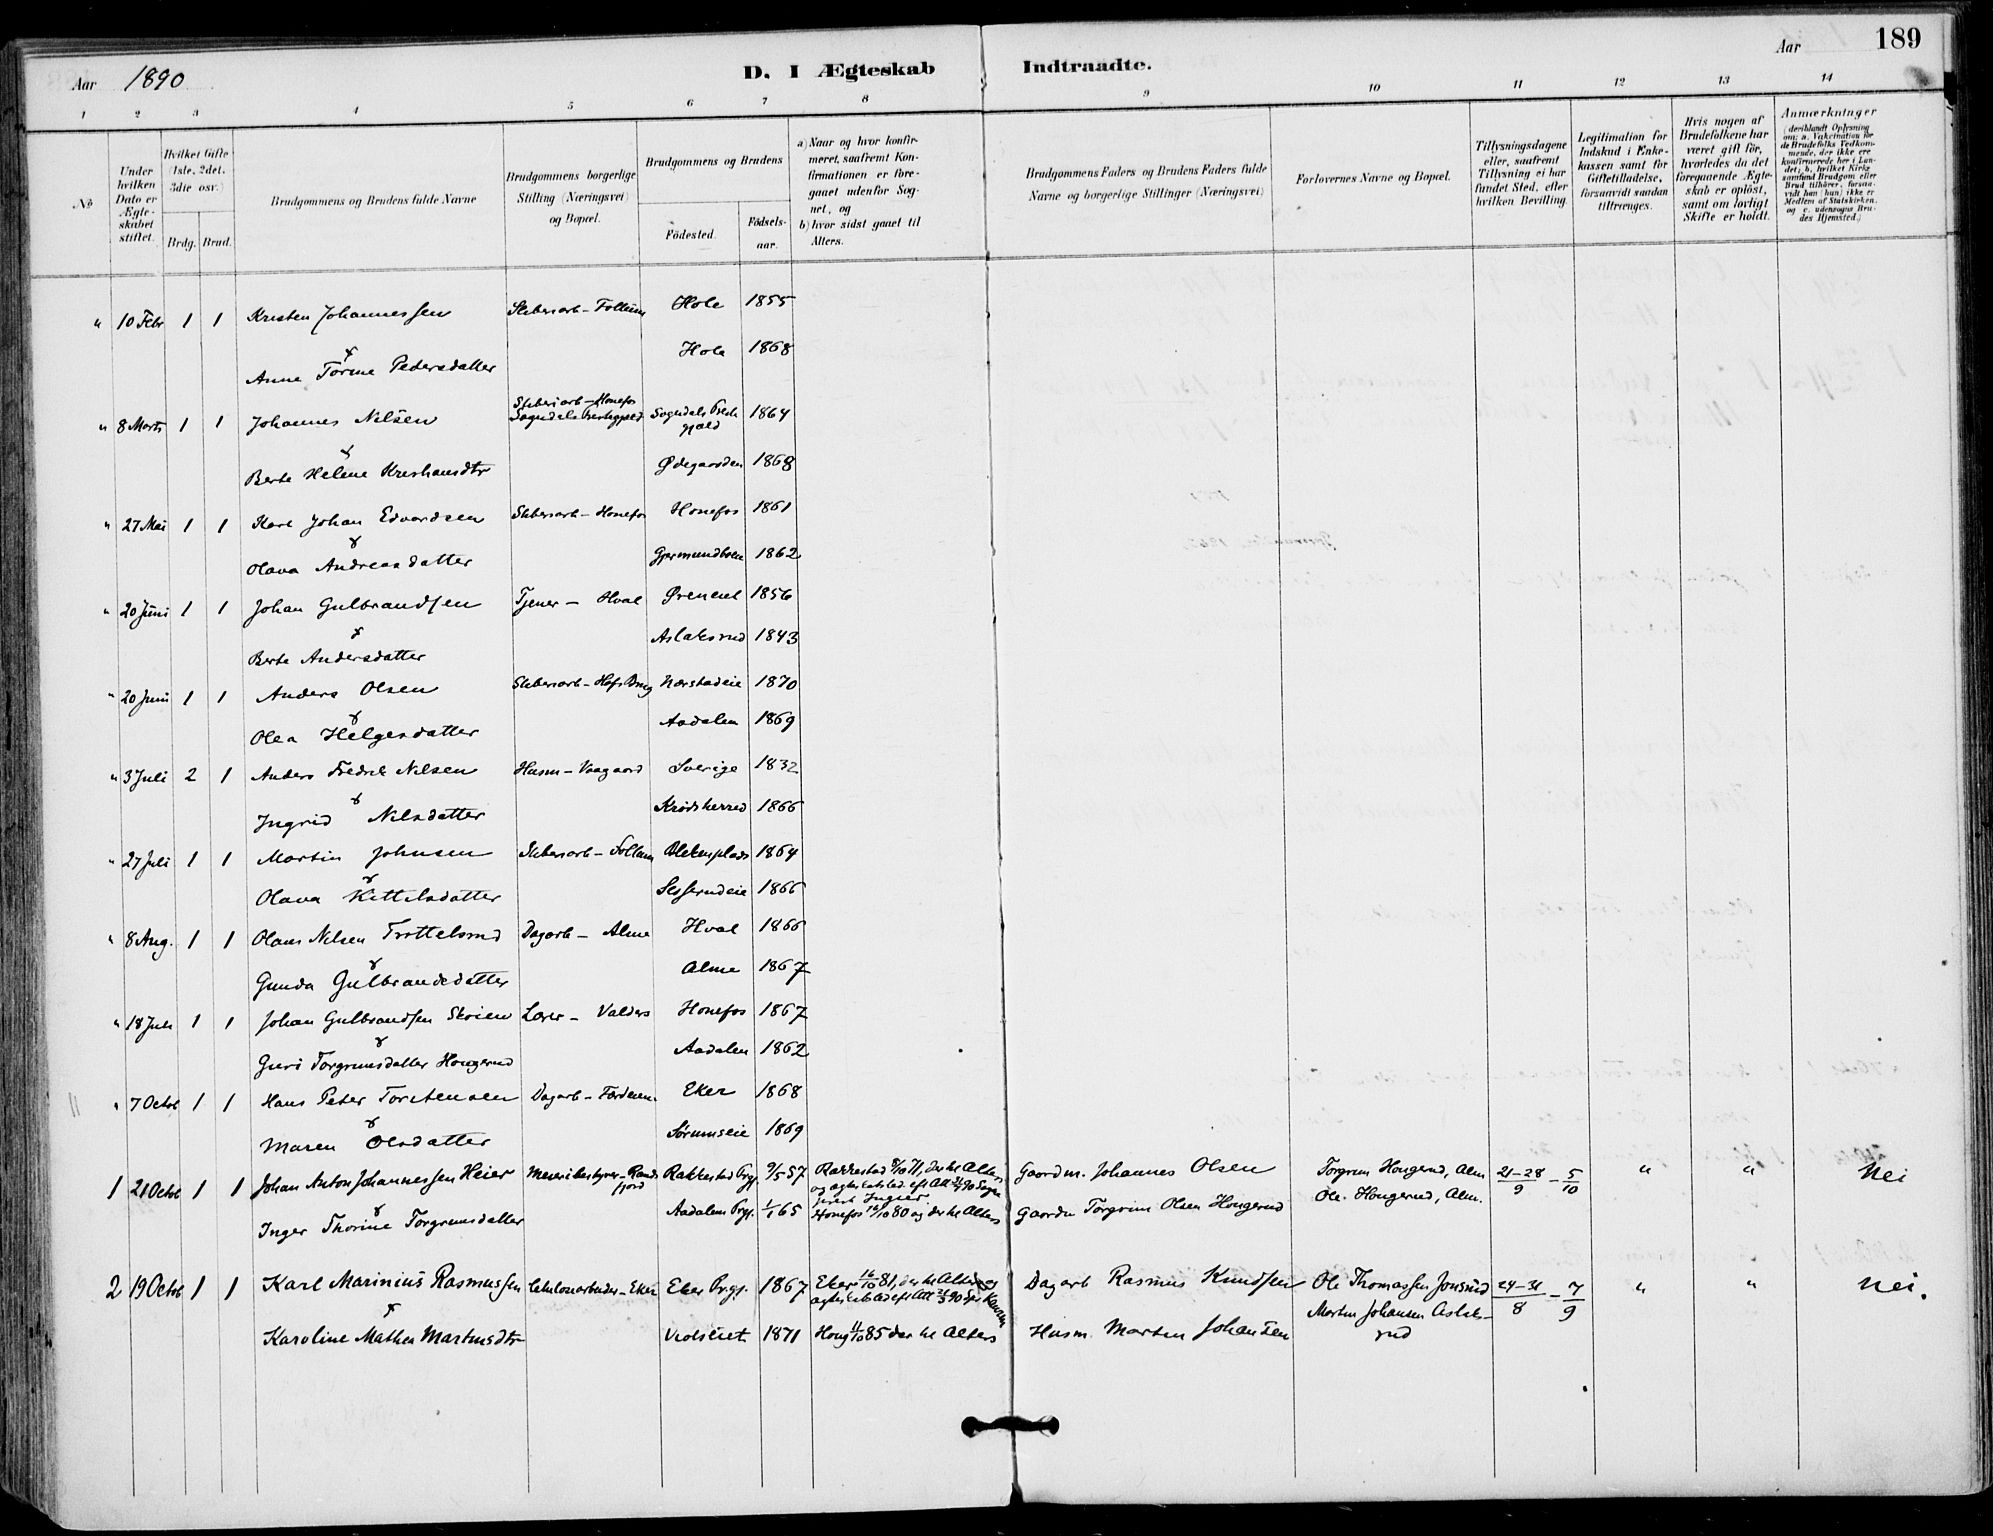 Aar 1890
D. I Ægteskab Indtraadte.
Aar 189
1 2 3 4 5 6 7 8 9 10 11 12 13 14
No
Under hvilken Dato er Ægteskabet stiftet.
Hvilket Gifte (1ste, 2det, 3die osv.)
Brdg. Brud.
Brudgommens og Brudens fulde Navne
Brudgommens borgerlige Stilling (Næringsvei) og Bopæl.
Brudgommens og Brudens
Födested.
Födselsaar.
a) Naar og hvor konfirmeret, saafremt Konfirmationen er foregaaet udenfor Sognet, og
b) hvor sidst gaaet til Alters.
Brudgommens Faders og Brudens Faders fulde Navne og borgerlige Stillinger (Næringsvei)
Forlovernes Navne og Bopæl.
Tillysningsdagene eller, saafremt Tillysning ei har fundet Sted, efter hvilken Bevilling.
Legitimation for Indskud i Enkekassen samt for Giftetilladelse, forsaavidt saadan tiltrænges.
Hvis nogen af Brudefolkene har været gift för, hvorledes da det foregaaende Ægteskab er oplöst, samt om lovligt Skifte er holdt.
Anmærkninger (deriblandt Oplysning om: a. Vakcination for de Brudefolks Vedkommende, der ikke ere konfirmerede her i Landet; b. hvilket Kirkesamfund Brudgom eller Brud tilhörer, forsaavidt han (hun) ikke er Medlem af Statskirken, og c. udensogns Brudes Hjemsted.)
" 10 Febr 1 1 Kristen Johannessen Sliberiarb - Follum Hole 1855
&
Anne Torine Pedersdatter Hole 1868
" 8 Marts 1 1 Johannes Nilsen Sliberiarb - Honefos Sogndals Prestegjæld Sogndals Prestegjæld 1864
&
Berte Helene Kristiansdtr Ødegaarden 1868
" 27 Mai 1 1 Karl Johan Edvardsen Sliberiarb - Honefos Honefos 1861
&
Olava Andreasdatter Gjermundboeie 1862
" 20 Juni 1 1 Johan Gulbrandsen Tjener - Hval 1856
&
Berte Andersdatter Aslaksrud 1843
" 20 Juni 1 1 Anders Olsen Sliberiarb - Hofs Brug Nærstadeie 1870
&
Olea Helgesdatter Aadalen 1869
" 3 Juli 2 1 Anders Fredrik Nilsen Husm - Vaagaard Sverige 1832
&
Ingrid Nilsdatter Krødsherred 1866
" 27 Juli 1 1 Martin Johnsen Sliberiarb - Follum 1864
&
Olava Kittelsdatter 1866
" 8 Aug. 1 1 Olaus Nilsen Trottelsrud Dagarb - Alme Hval 1866
&
Gunda Gulbrandsdatter Alme 1867
" 18 Juli 1 1 Johan Gulbrandsen Skoien Lærer - Valders Honefos 1867
&
Guri Torgrimsdatter Hougerud Aadalen 1862
" 7 Octob 1 1 Hans Peter Torstensen Dagarb - Eker 1868
&
Maren Olsdatter Sørumseie 1869
1 21 Octob 1 1 Johan Anton Johannessen Heier Meieribestyrer - Randsfjord Rakkestad Prgj. 9/5 57 Rakkestad 8/10 71, der til Alters Gaardm. Johannes Olsen Torgrim Hougerud, Alm 21-28/9 - 5/10 " " Nei
&
Inger Thorine Torgrimsdatter Aadalens Prgj. 1/1 65 Honefos 16/10 80 og der til Alters Gaardm Torgrim Olsen Hougerud Ole Hougerud, Alm.
2 19 Octob 1 1 Karl Marinius Rasmussen Celulosarbeider - Eker Eker Prgj. 1867 Eker 16/10 81, der til Alters og Dagarb Rasmus Knudsen Ole Thomassen Jonsrud 24-31/8 - 7/9 " " Nei.
&
Karoline Mathea Martinsdtr 1871 Houg 11/10 85 der til Alters Husm. Martin Johansen Morten Johansen Aslaksrud